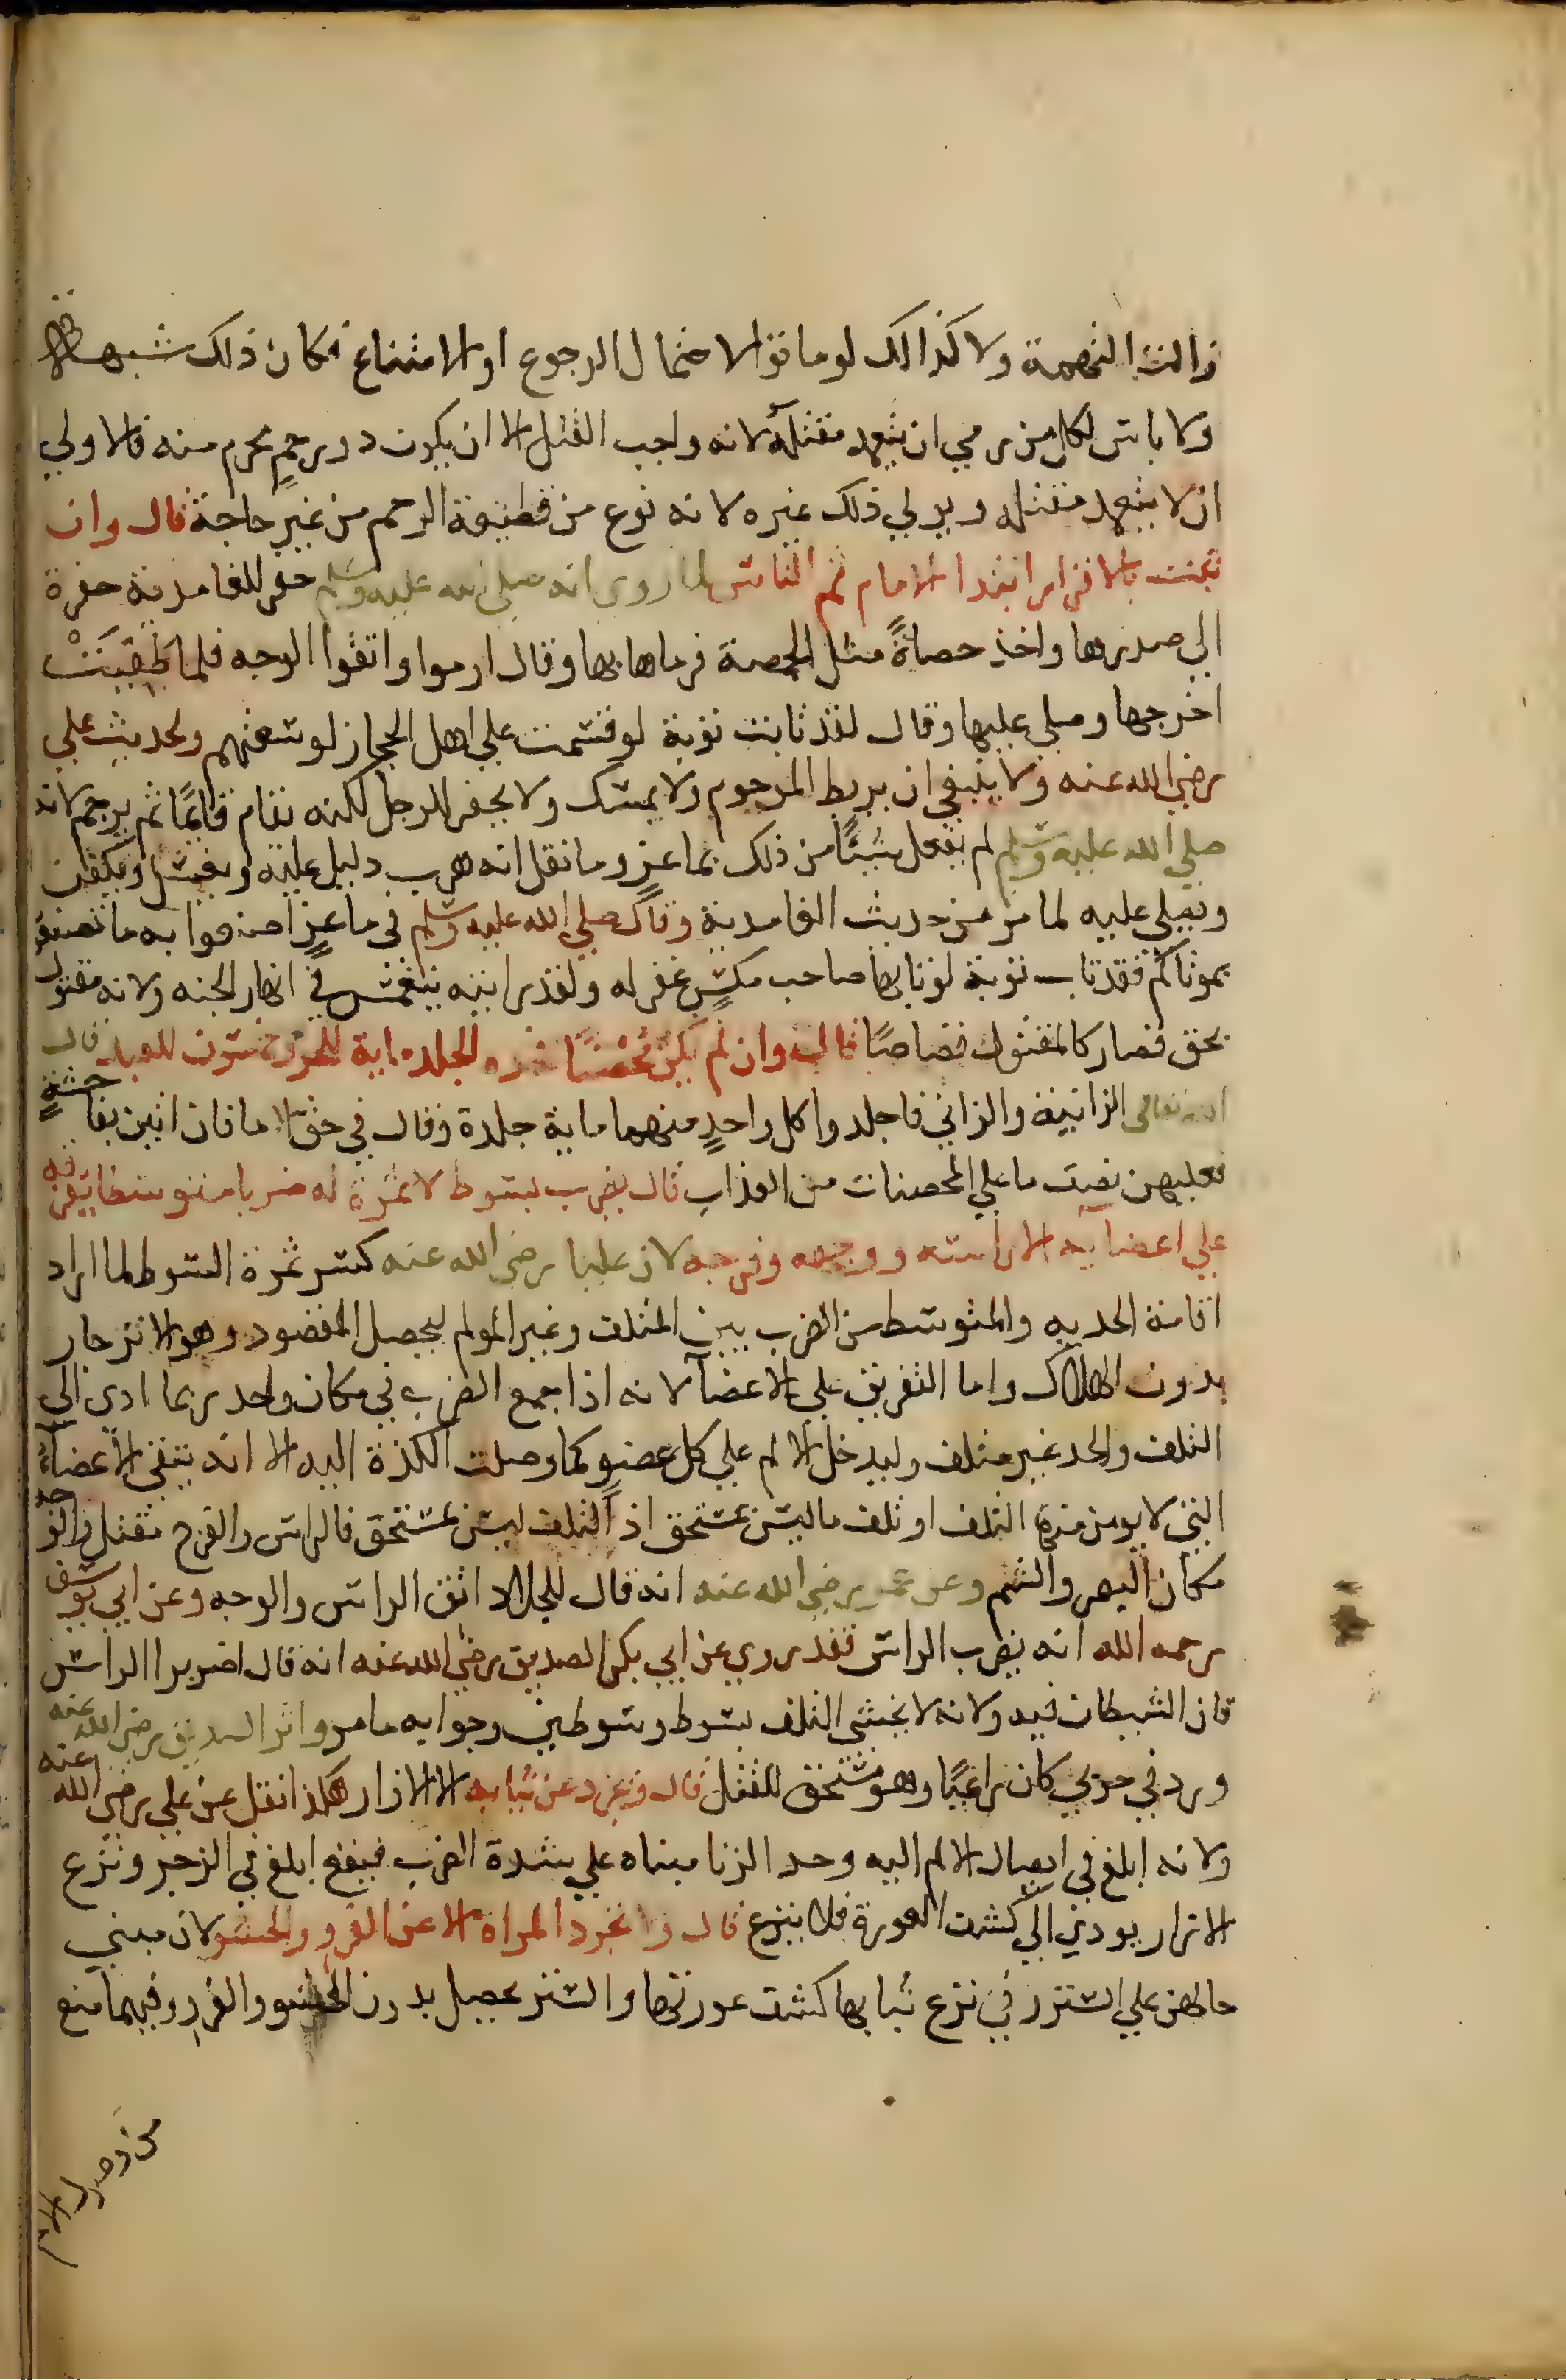 زالت التهمة ولا كذالك لو ماتوا لاحتمال الرجوع او الامتناع فكان ذلك شبهة قال
ولا باس لكل من رمي ان يتعمد مقتله لانه واجب القتل الا ان يكون ذو رحمٍ محرم منه فالاولي
ان لا يتعمد مقتله ويولي ذلك غيره لانه نوع من قطيعة الرحم من غير حاجة قال وان
ثبت بالاقرار ابتدا الامام ثم الناس لما روي انه صلي الله عليه وسلم حفر للغامدية حفرة
الي صدرها واخذ حصاةً مثل الحمصة فرماها بها وقال ارموا واتقوا الوجه فلما طُعِنَتْ
اخرجها وصلي عليها وقال لقد تابت توبة لو قسمت علي اهل الحجاز لوسعتهم ولحديث علي
رضي الله عنه ولا ينبغي ان يربط المرجوم ولا يمسك ولا يحفر للرجل لكنه يقام قائمًا ثم يرجم لانه
صلي الله عليه وسلم لم يفعل شيئًا من ذلك بماعزٍ وما نقل انه هرب دليل عليه ويغسل ويكفن
ويصلي عليه لما مر من حديث الغامدية وقال صلي الله عليه وسلم في ماعزٍ اصنعوا به ما تصنعون
بموتاكم فقد تاب توبة لو تابها صاحب مكسٍ غفر له ولقد رايته ينغمس في انهار الجنه ولانه مقتول
بحق فصار كالمقتول قصاصًا قال وان لم يكن محصنًا فحده الجلد ماية للحر وخمسون للعبد قال
الله تعالى الزانية والزاني فاجلدوا كل واحدٍ منهما ماية جلدة وقال في حق الاما فان اتين بفاحشةٍ
فعليهن نصف ما علي المحصنات من العذاب قال يضرب بسوط لا ثمرة له ضربا متوسطا يفرقه
علي اعضآيه الا راسه ووجهه وفرجه لان عليا رضي الله عنه كسر ثمرة السوط لما اراد
اقامة الحد به والمتوسط من الضرب بين المتلف وغير المولم ليحصل المقصود وهو الانزجار
بدون الهلاك واما التفريق علي الاعضآ لانه اذا جمع الضرب في مكان واحد ربما ادى الي
التلف والحد غير متلف وليدخل الالم علي كل عضوٍ كما وصلت اللذة اليه الا انه يتقي الاعضآء
التي لا يومن منها التلف او تلف ما ليس بمستحق اذ التلف ليس بمستحق فالراس والفرج مقتل والوجه
مكان البصر والشم وعن عمر رضي الله عنه انه قال للجلاد اتق الراس والوجه وعن ابي يوسف
رحمه الله انه يضرب الراس فقد روي عن ابي بكر الصديق رضي الله عنه انه قال اضربوا الراس
فان الشيطان فيه ولانه لا يخشي التلف بسوط وسوطين وجوابه ما مر واثر الصديق رضي الله عنه
ورد في حربي كان راعيًا وهو مستحق للقتل قال ويجرد عن ثيابه الا الازار هكذا نقل عن علي رضي الله عنه
ولانه ابلغ في ايصال الالم اليه وحد الزنا مبناه علي شدة الضرب فيقع ابلغ في الزجر ونزع
الازار يودي الي كشف العورة فلا ينزع قال ولا تجرد المراة الا عن الفرو والحشو لان مبني
حالهن علي الستر وفي نزع ثيابها كشف عورتها والستر يحصل بدون الحشو والفرو وفيهما منع
من وصول الالم